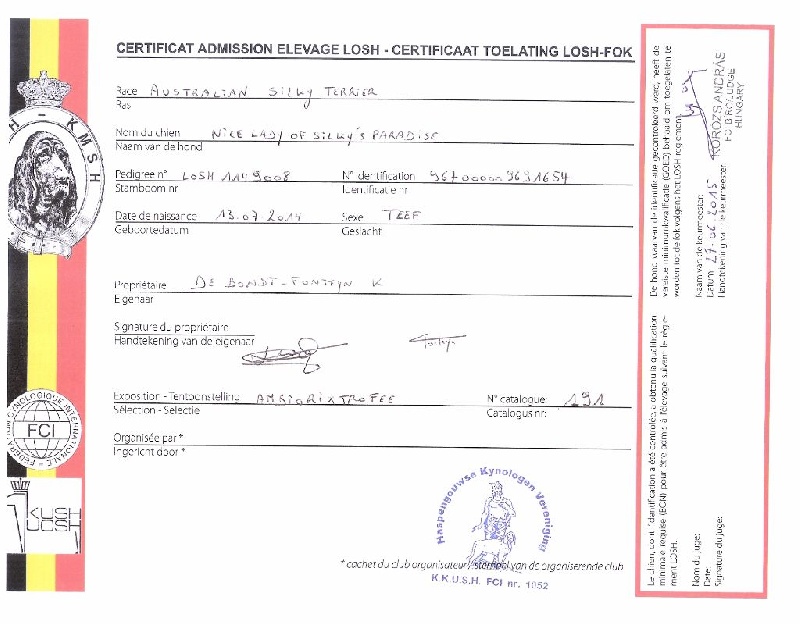 CERTIFICAT ADMISSION ELEVAGE LOSH - CERTIFICAAT TOELATING LOSH-FOK
Race AUSTRALIAN SILKY TERRIER
Ras
Nom du chien NICE LADY OF SILKY'S PARADISE
Naam van de hond
Pedigree n° LOSH 1149008 N° identification 967000009631654
Stamboom nr Identificatie nr
Date de naissance 13.07 2014 Sexe TEEF
Geboortedatum Geslacht
Propriétaire DE BONDT-FONTEYN K
Eigenaar
Signature du propriétaire
Handtekening van de eigenaar
Exposition - Tentoonstelling AMBIORIXTROFEE N° catalogue: 191
Sélection - Selectie Catalogus nr:
Organisée par *
Ingericht door *
* cachet du club organisateur / stempel van de organiserende club
Haspengouwse Kynologen Vereniging
K.K.U.S.H. FCI nr. 1052
H - KMSH
FCI
FEDERATION CYNOLOGIQUE INTERNATIONALE
KUSH
UCSH
De hond, waarvan de identificatie gecontroleerd werd, heeft de
vereiste minimumkwalificatie (GOED) behaald om toegelaten te
worden tot de fok volgens het LOSH reglement.
Naam van de keurmeester:
Datum: 27-06-2015
Handtekening van de keurmeester:
KOROZS ANDRÁS
FCI BIRO/JUDGE
HUNGARY
Le chien, dont l'identification a été contrôlée, a obtenu la qualification
minimale requise (ECN) pour être admis à l'élevage suivant le règle-
ment LOSH.
Nom du juge:
Date:
Signature du juge: